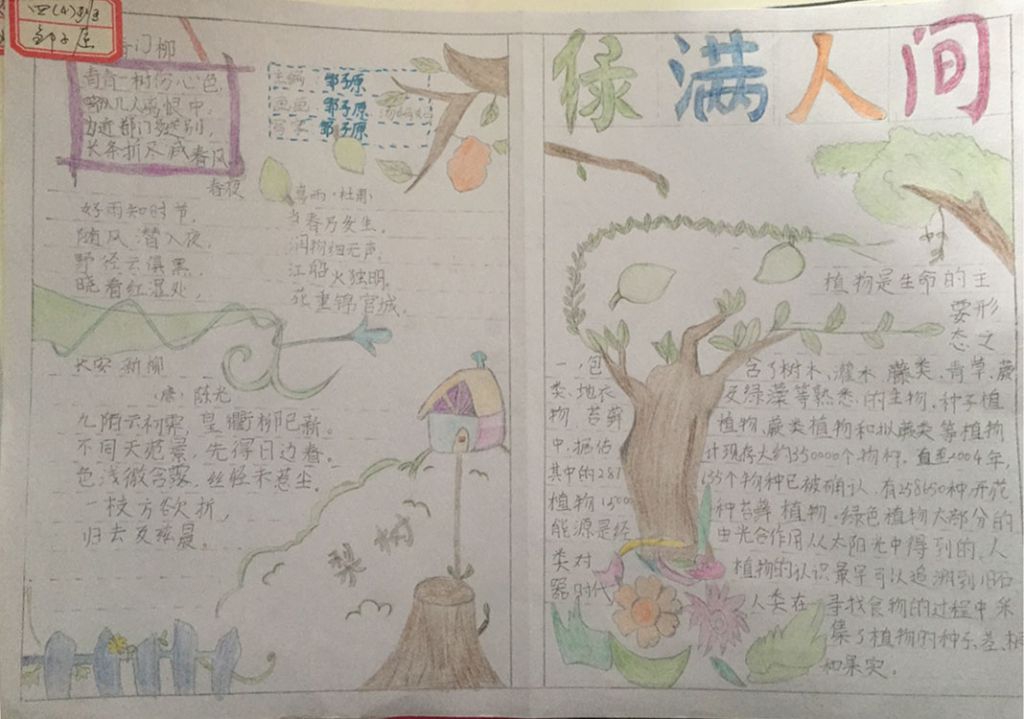 四(4)班
邹子原
门柳
青青一树伤心色,
几人离恨中,
为近都门多送别,
长条折尽减春风。
主编 邹子原
画画 邹子原
邹子原
春夜
喜雨·杜甫
好雨知时节,
当春乃发生。
随风潜入夜,
润物细无声。
野径云俱黑,
江船火独明。
晓看红湿处,
花重锦官城。
长安新柳
唐 陈光
九陌云初霁,皇衢柳已新。
不同天苑景,先得日边春。
色浅微含露,丝轻未惹尘。
一枝方欲折,
归去及兹晨。
梨树
绿满人间
植物是生命的主
要形
态之
一,包含了树木、灌木、藤类、青草、蕨
类、地衣及绿藻等熟悉的生物。种子植
物、苔藓植物、蕨类植物和拟蕨类等植物
中,据估计现存大约350000个物种。直至2004年,
其中的287655个物种已被确认,有258650种开花
植物15000种苔藓植物。绿色植物大部分的
能源是经由光合作用从太阳光中得到的。人
类对植物的认识最早可以追溯到旧石
器时代人类在寻找食物的过程中采
集了植物的种子、茎、根
和果实。